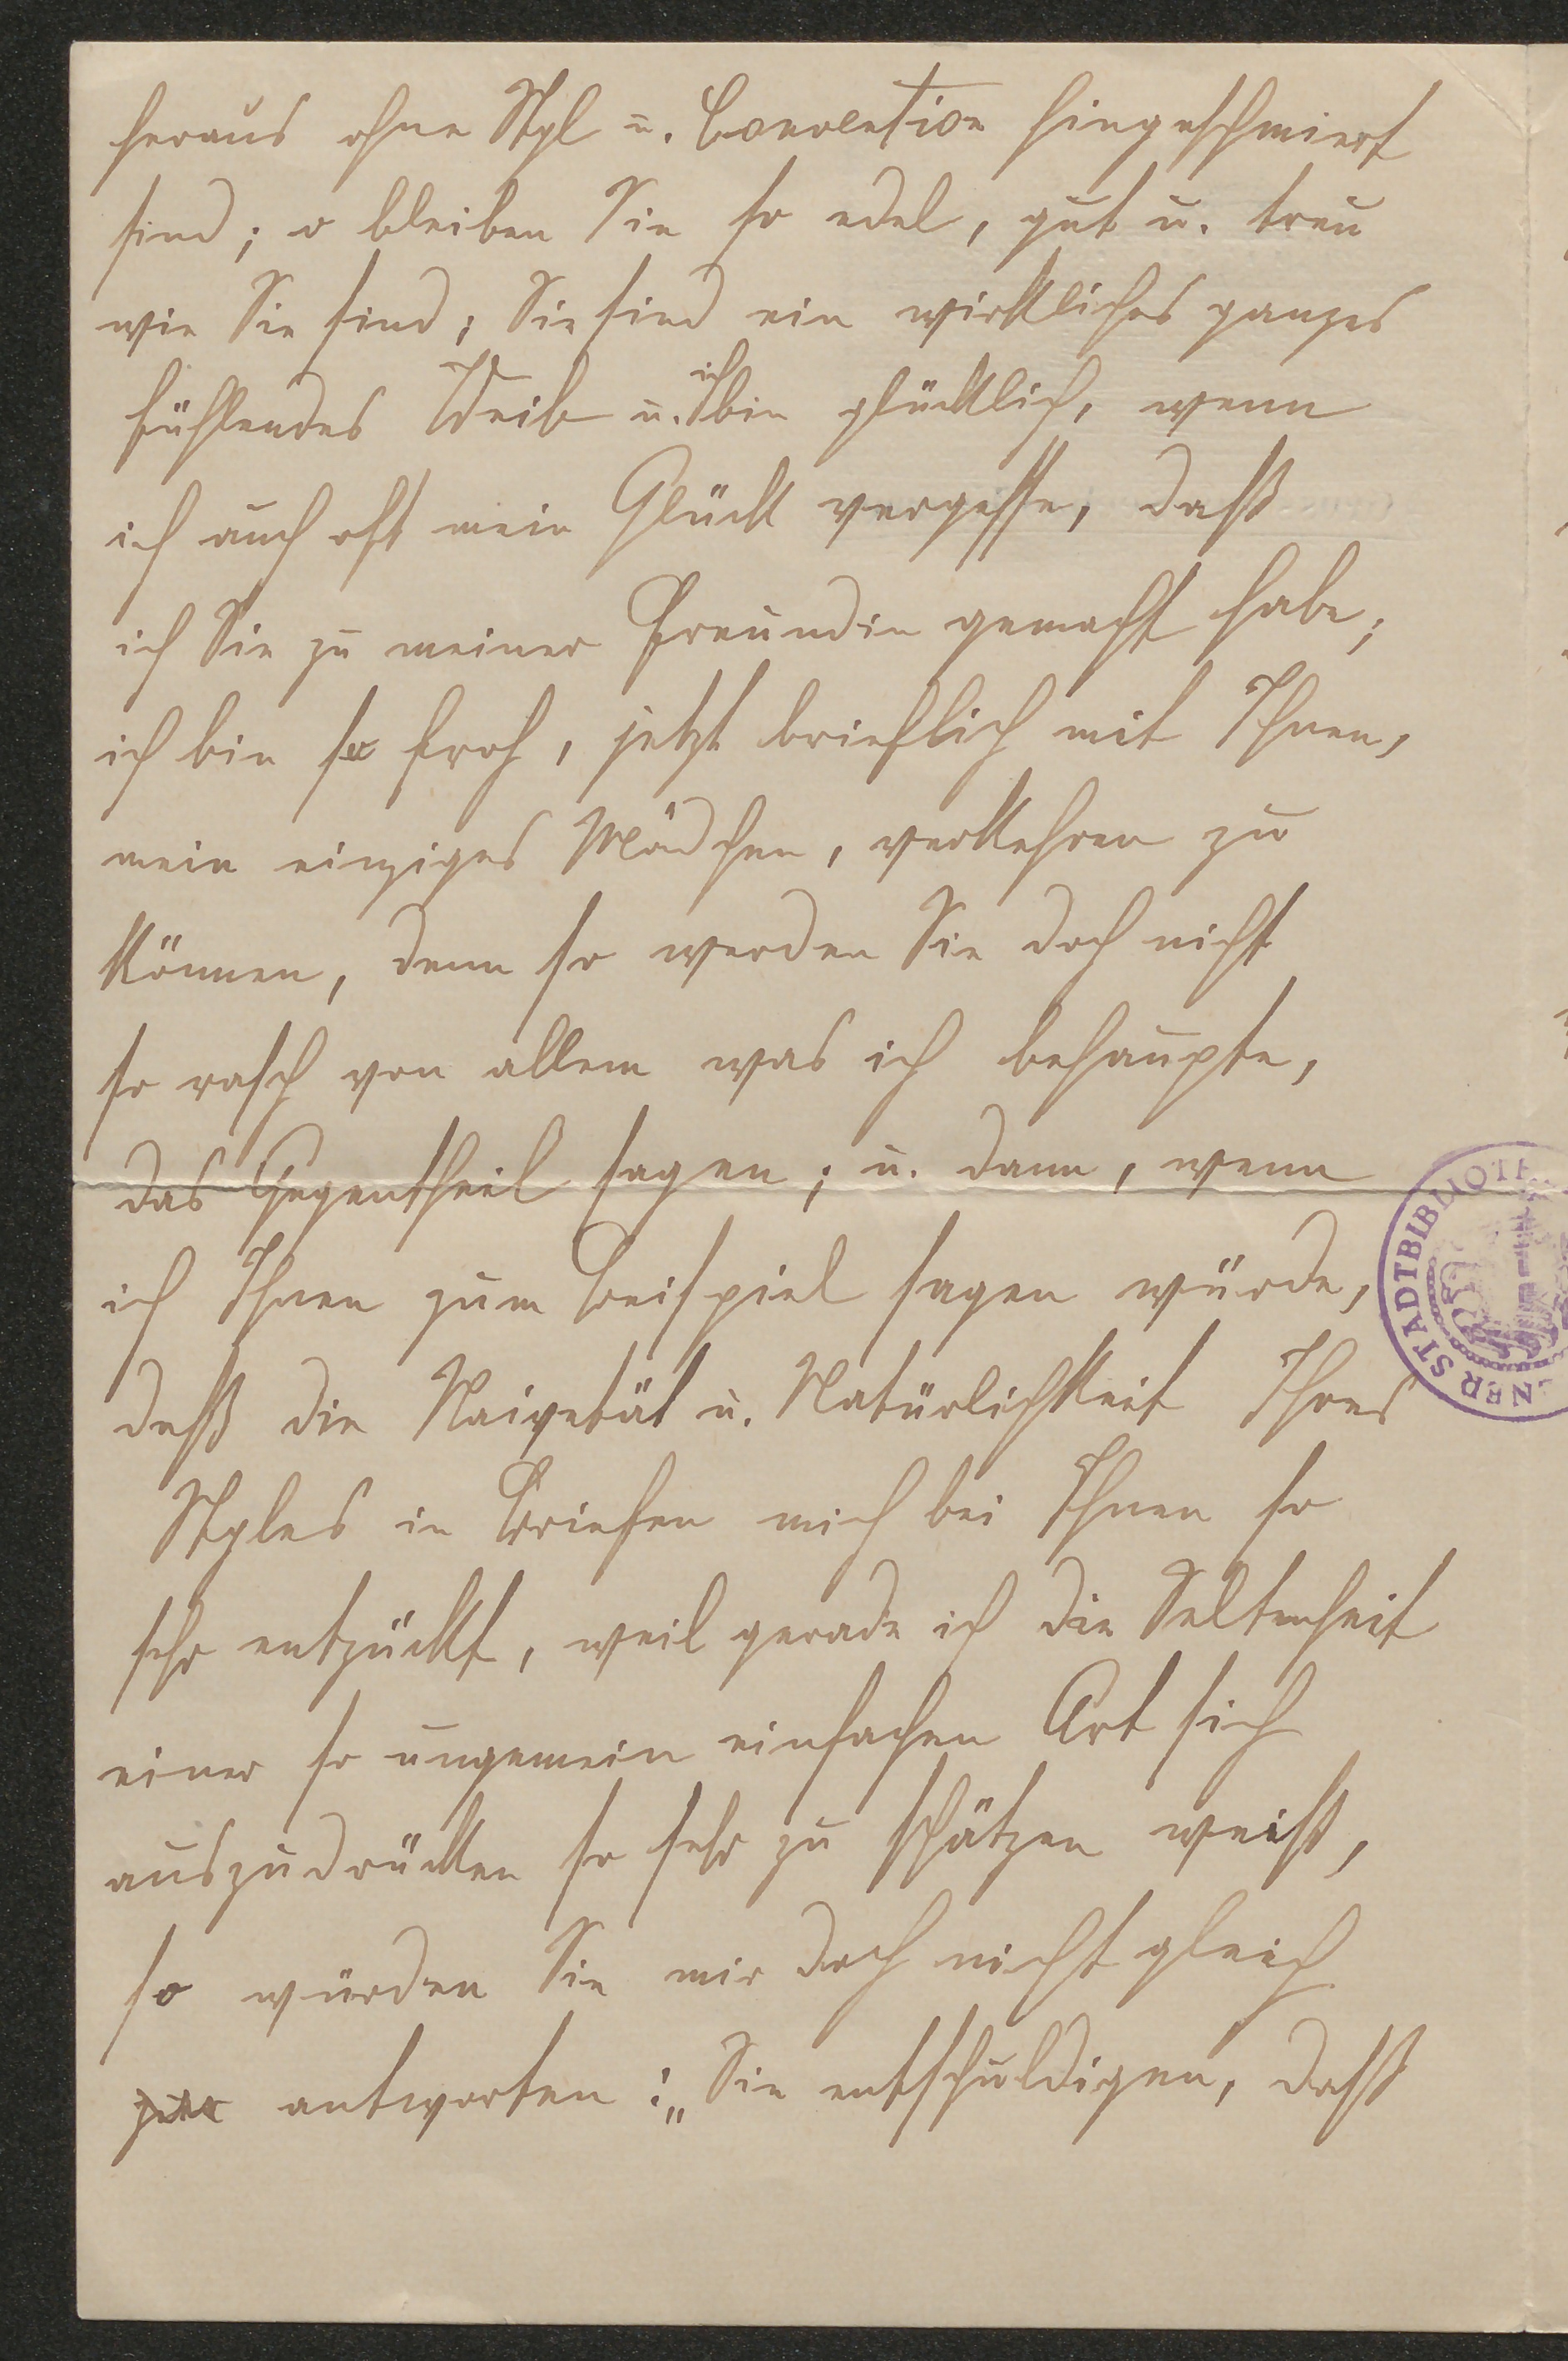 heraus ohne Styl u. Correction hingeschmiert
sind; o bleiben Sie so edel, gut u. treu
wie Sie sind; Sie sind ein wirkliches ganzes
fühlendes Weib u. ich bin glücklich, wenn
ich auch oft mein Glück vergesse, daß
ich Sie zu meiner Freundin gemacht habe;
ich bin so froh, jetzt brieflich mit Ihnen,
mein einziges Mädchen, verkehren zu
können, denn so werden Sie doch nicht
so rasch von allem was ich behaupte,
das Gegentheil sagen; u. dann, wenn
ich Ihnen zum Beispiel sagen würde,
daß die Naivetät u. Natürlichkeit Ihres
Styles in Briefen mich bei Ihnen so
sehr entzückt, weil gerade ich die Seltenheit
einer so ungemein einfachen Art sich
auszudrücken so sehr zu schätzen weiß,
so würden Sie mir doch nicht gleich
antworten: „Sie entschuldigen, daß
NER STADTBIBLIOTHE